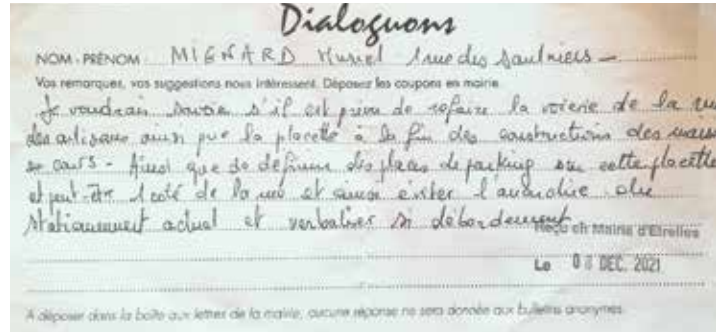 Dialoguons
NOM - PRÉNOM MIGNARD Muriel 1 rue des Saulniers -
Vos remarques, vos suggestions nous intéressent. Déposez les coupons en mairie.
Je voudrais savoir s'il est prévu de refaire la voierie de la rue
des artisans ainsi que la placette à la fin des constructions des maisons
en cours - Ainsi que de définir des places de parking sur cette placette
et peut-être 1 coté de la rue et ainsi éviter l'anarchie du
stationnement actuel et verbaliser si débordement
Reçu en Mairie d'Etrelles
Le 0 DEC. 2021
A déposer dans la boîte aux lettres de la mairie, aucune réponse ne sera donnée aux bulletins anonymes.